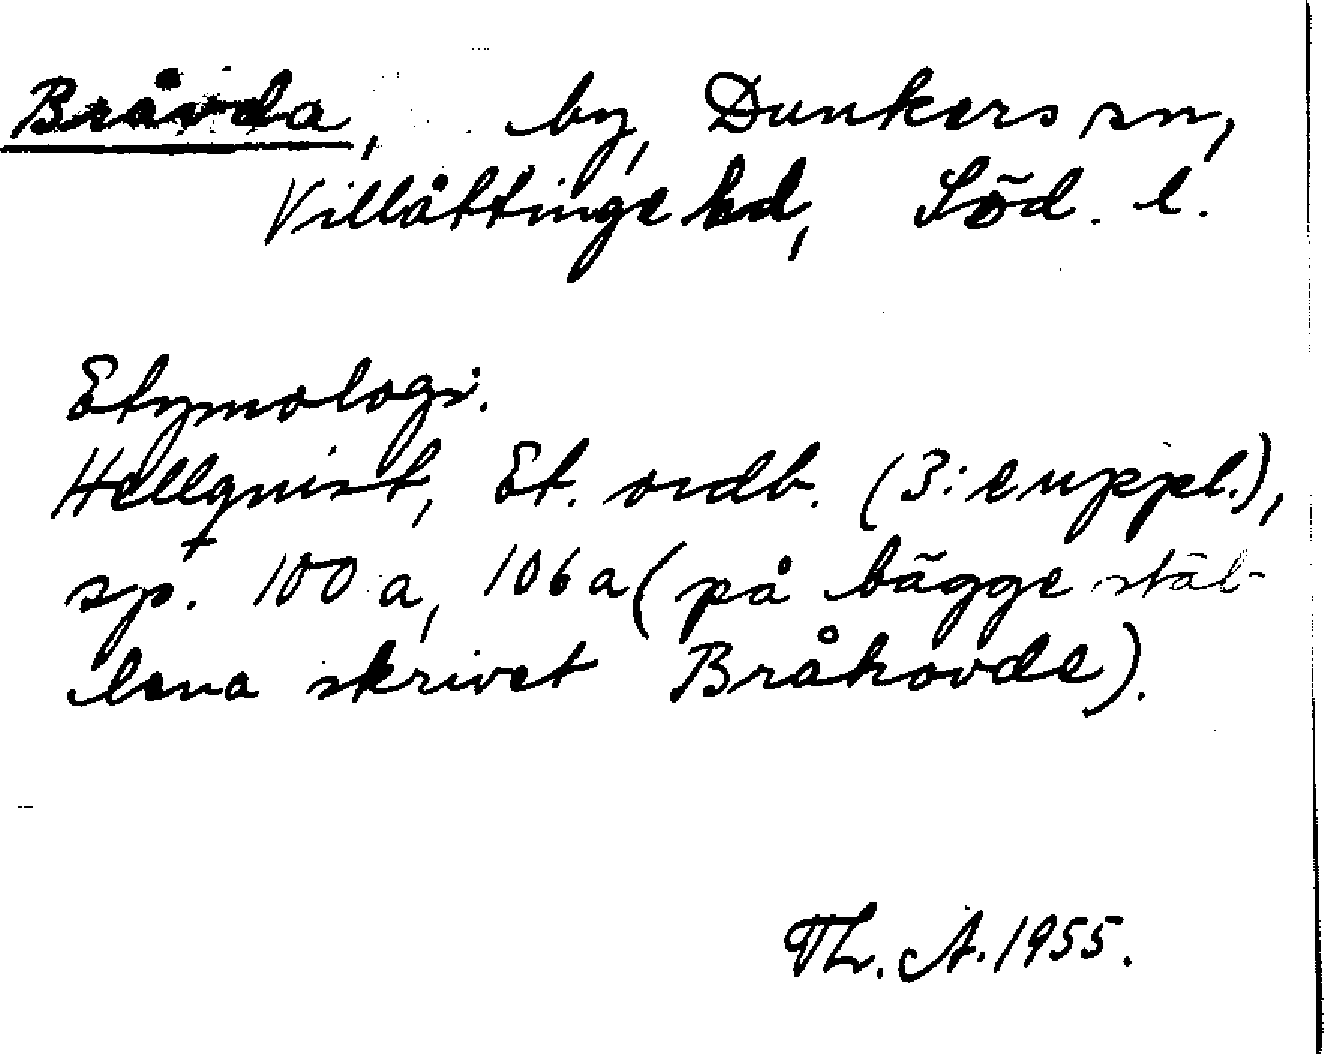 Bråvda, by, Dunkers sn,
Villåttinge hd, Söd. l.
Etymologi.
Hellquist, Et. ordb. (3:e uppl.),
sp. 100 a, 106 a (på bägge stäl-
lena skrivet Bråhovde).
Th. A. 1955.